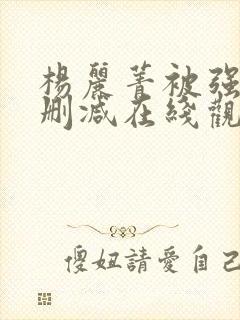 楊麗菁被强
删减在綫觀
傻妞請愛自己